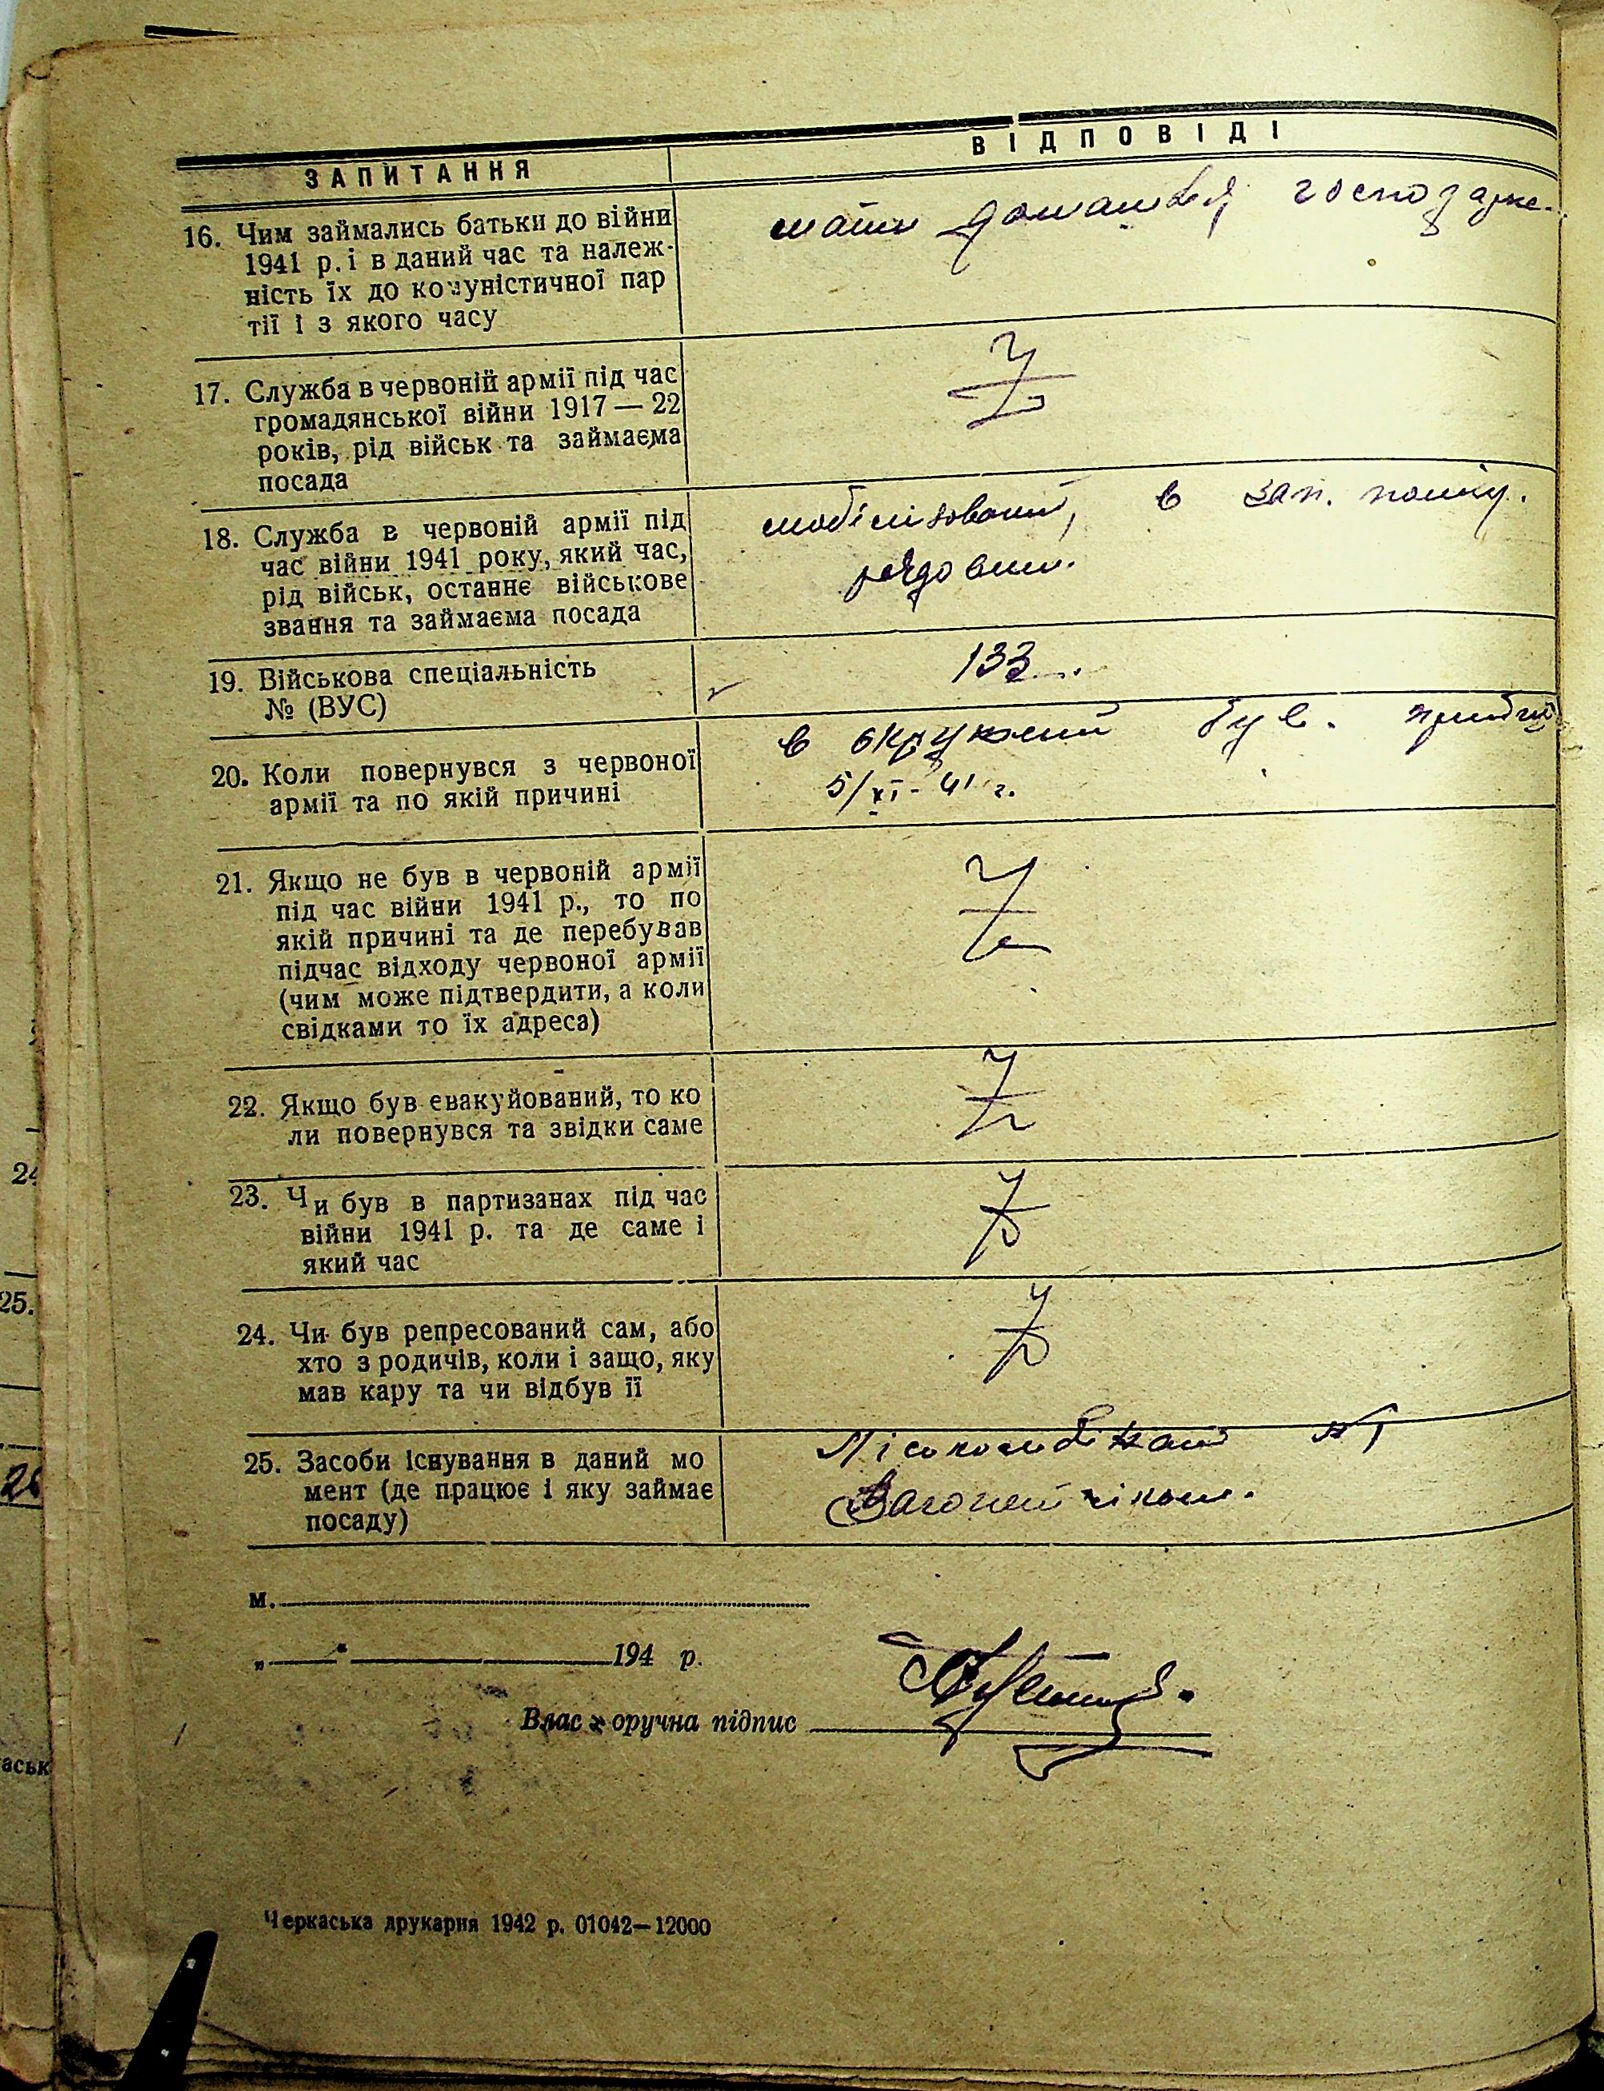 ЗАПИТАННЯ
ВІДПОВІДІ
16. Чим займались батьки до війни
1941 р. і в даний час та належ-
ність їх до комуністичної пар
тії і з якого часу
мати домашня господарк.
17. Служба в червоній армії під час
громадянської війни 1917 — 22
років, рід військ та займаєма
посада
18. Служба в червоній армії під
час війни 1941 року, який час,
рід військ, останнє військове
звання та займаєма посада
мобілізований, в зап. полку.
рядовим.
19. Військова спеціальність
№ (ВУС)
133
20. Коли повернувся з червоної
армії та по якій причині
в окружений був. прибив
5/XI-41 г.
21. Якщо не був в червоній армії
під час війни 1941 р., то по
якій причині та де перебував
підчас відходу червоної армії
(чим може підтвердити, а коли
свідками то їх адреса)
22. Якщо був евакуйований, то ко
ли повернувся та звідки саме
23. Чи був в партизанах під час
війни 1941 р. та де саме і
який час
24. Чи був репресований сам, або
хто з родичів, коли і защо, яку
мав кару та чи відбув її
25. Засоби існування в даний мо
мент (де працює і яку займає
посаду)
Лісокомбінат №1
Вагонетчіком.
м.
„ “ 194 р.
Власноручна підпис
Черкаська друкарня 1942 р. 01042—12000
24
25.
26
аськ